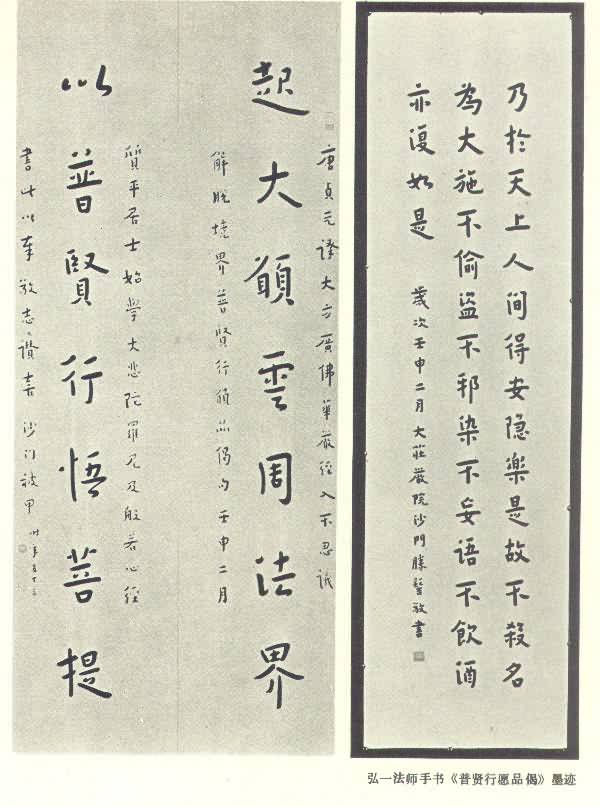 乃於天上人间得安隐樂是故不殺名
為大施不偷盜不邪染不妄语不飲酒
亦復如是
歲次壬申二月大莊嚴院沙門勝髻敬書
唐貞元譯大方廣佛華嚴經入不思議
起大願雲周法界
解脫境界普賢行願品偈句壬申二月
質平居士始學大悲陀羅尼及般若心經
以普賢行悟菩提
書此以奉敬志讚喜沙门被甲时年五十三
弘一法师手书《普贤行愿品偈》墨迹